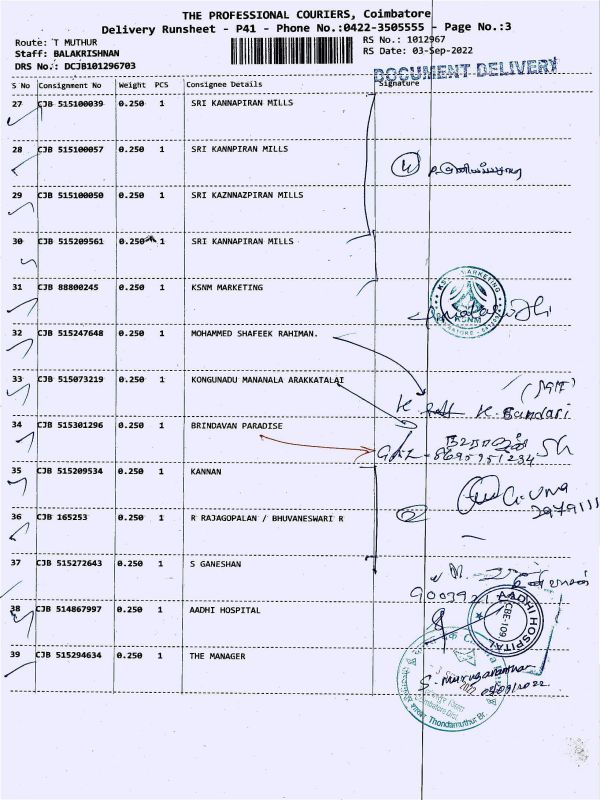 THE PROFESSIONAL COURIERS, Coimbatore
Delivery Runsheet - P41 - Phone No.:0422-3505555 - Page No.:3
Route: T MUTHUR
RS No.: 1012967
Staff: BALAKRISHNAN
RS Date: 03-Sep-2022
DRS No.: DCJB101296703
DOCUMENT DELIVERY
S No Consignment No Weight PCS Consignee Details Signature
27 CJB 515100039 0.250 1 SRI KANNAPIRAN MILLS
28 CJB 515100057 0.250 1 SRI KANNPIRAN MILLS
29 CJB 515100050 0.250 1 SRI KAZNNAZPIRAN MILLS
30 CJB 515209561 0.250 1 SRI KANNAPIRAN MILLS
31 CJB 88800245 0.250 1 KSNM MARKETING
32 CJB 515247648 0.250 1 MOHAMMED SHAFEEK RAHIMAN.
33 CJB 515073219 0.250 1 KONGUNADU MANANALA ARAKKATALAI
K. Bandari
34 CJB 515301296 0.250 1 BRINDAVAN PARADISE
8695951234
35 CJB 515209534 0.250 1 KANNAN
36 CJB 165253 0.250 1 R RAJAGOPALAN / BHUVANESWARI R
37 CJB 515272643 0.250 1 S GANESHAN
38 CJB 514867997 0.250 1 AADHI HOSPITAL
AADHI HOSPITAL
CBE-109
39 CJB 515294634 0.250 1 THE MANAGER
03/09/2022
Thondamuthur Br.